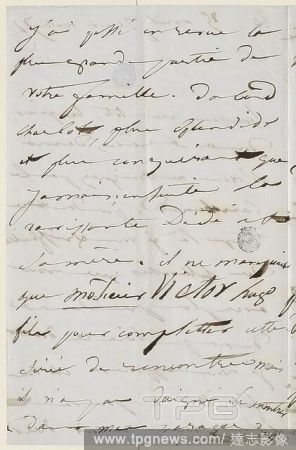 j'ai passé en revue la
plus grande partie de
votre famille. D'abord
charlot, plus splendide
et plus conquérant que
jamais, ensuite la
ravissante Dédé et
sa mère. il ne manquait
que monsieur Victor hugo
fils pour completter cette
série de rencontres mais
il n'a pas daigné se montrer
dans mes parages
TPG
www.tpgnews.com/ 達志影像